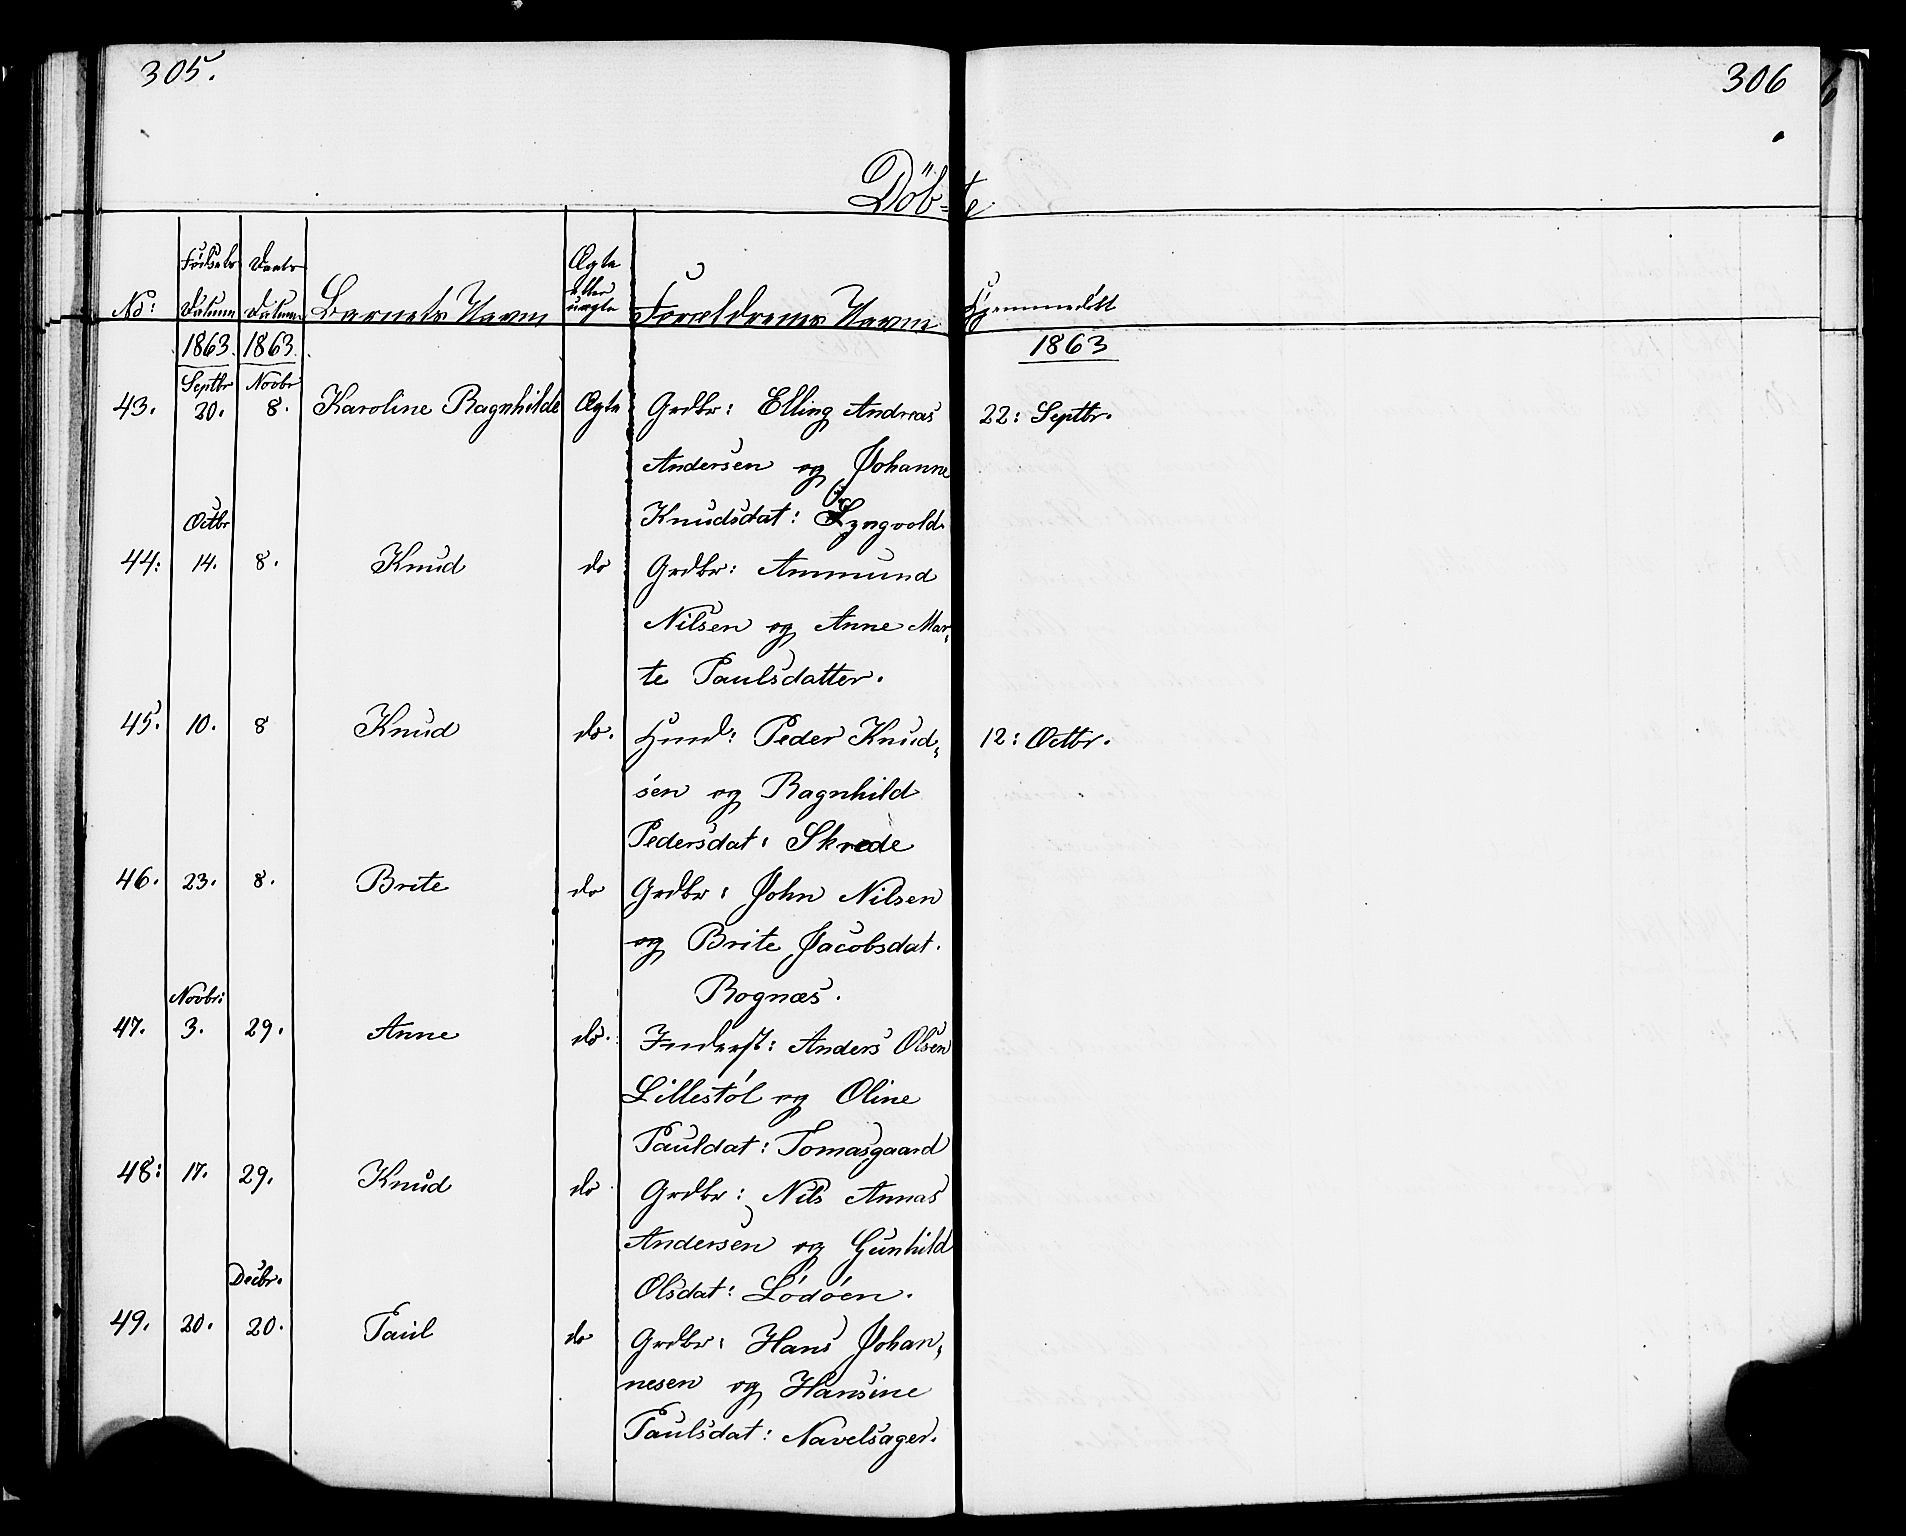 305.
306
Döb-te
No:
Födsels
Datum
Daabs
Datum
Barnets Navn
Ægte
eller
uægte
Forældrenes Navne
Hjemmedöbt
1863. 1863. 1863
Septbr Novbr
43. 20. 8. Karoline Ragnhilde Ægte Grdbr: Elling Andreas 22: Septbr.
Andersen og Johanne
Octbr Knudsdat: Lyngvold
44: 14. 8. Knud do Grdbr: Ammund
Nilsen og Anne Mar-
te Paulsdatter.
45. 10. 8 Knud do. Hmd: Peder Knud- 12: Octbr.
sen og Ragnhild
Pedersdat: Skrede
46. 23. 8. Brite do Grdbr: John Nilsen
og Brite Jacobsdat.
Novbr: Rognæs.
47. 3. 29. Anne do. Inderst: Anders Olsen
Lillestöl og Oline
Pauldat: Tomasgaard
48: 17. 29. Knud do Grdbr: Nils Annas
Andersen og Gunhild
Decbr. Olsdat: Lödöen.
49. 20. 20. Paul do Grdbr: Hans Johan-
nesen og Hansine
Paulsdat: Navelsager.